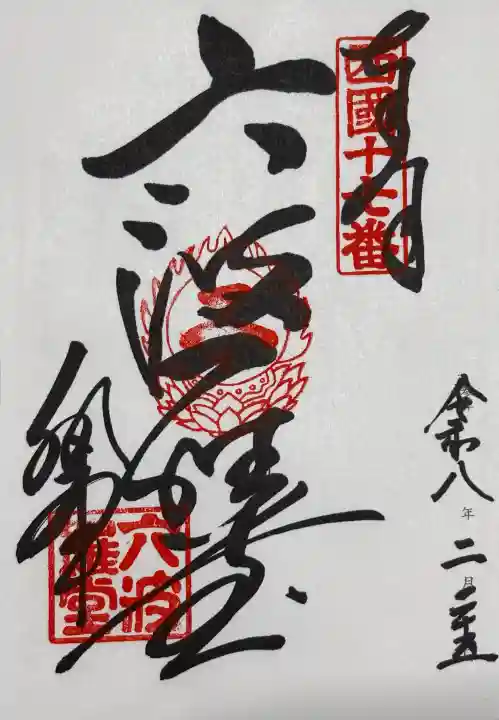 奉拝
西國十七番
六波羅堂
六波
羅堂
令和八年二月二十五